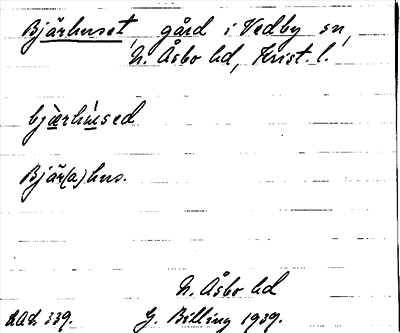 Bjärhuset, gård i Vedby sn,
N. Åsbo hd, Krist. l.
bjèrhúsed
Bjär(a)hus.
N. Åsbo hd
G. Billing 1939.